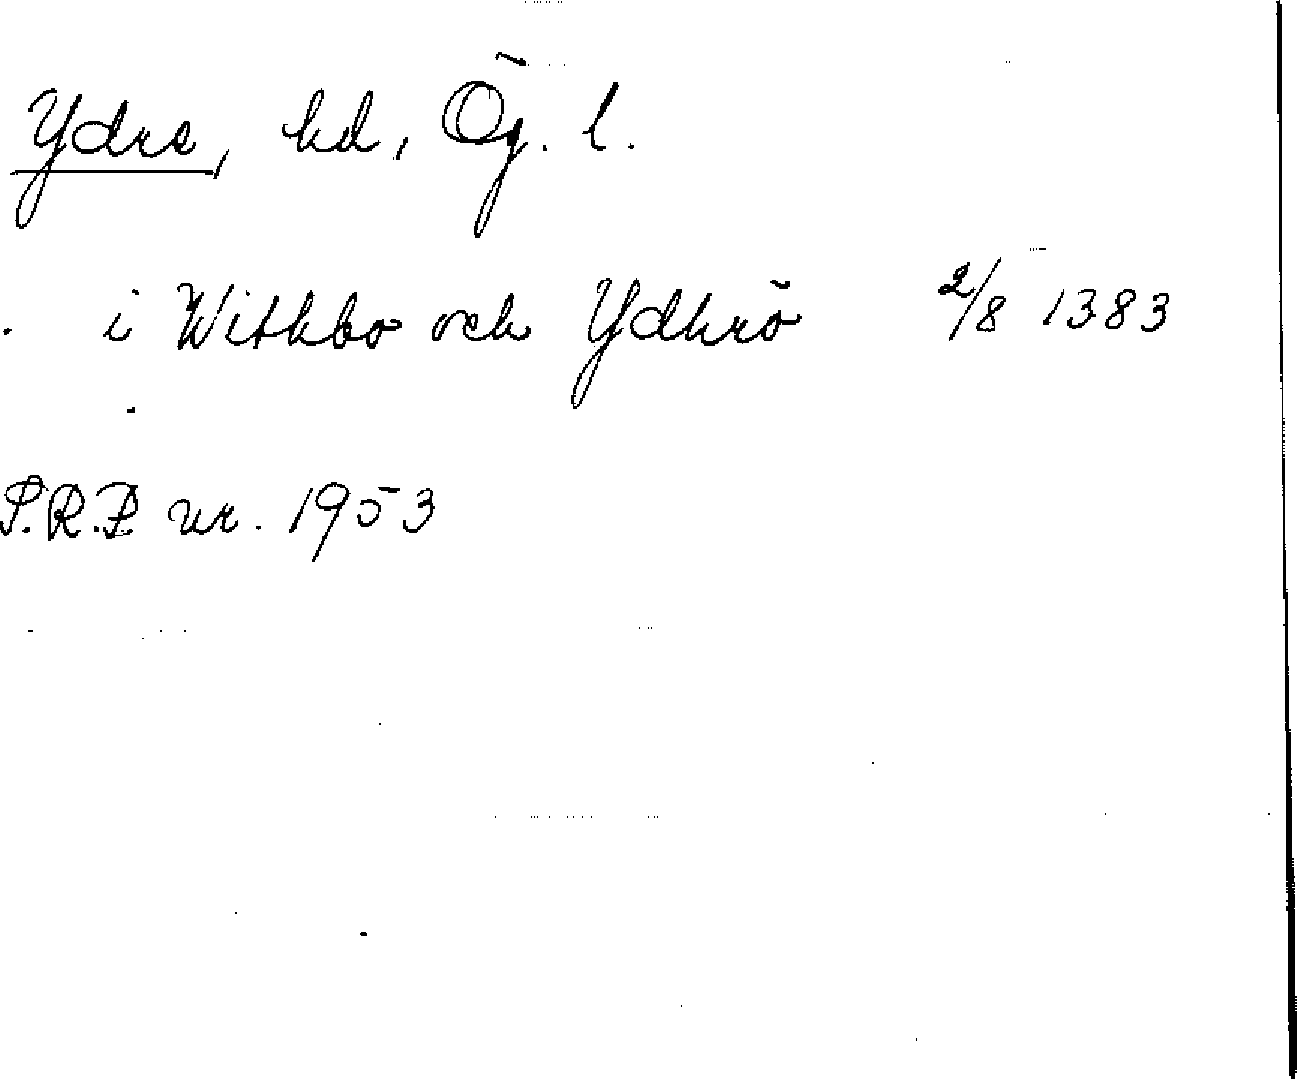 Ydre, hd, Ög. l.
i Withbo och Ydhrö 2/8 1383
P.R.P. nr. 1953